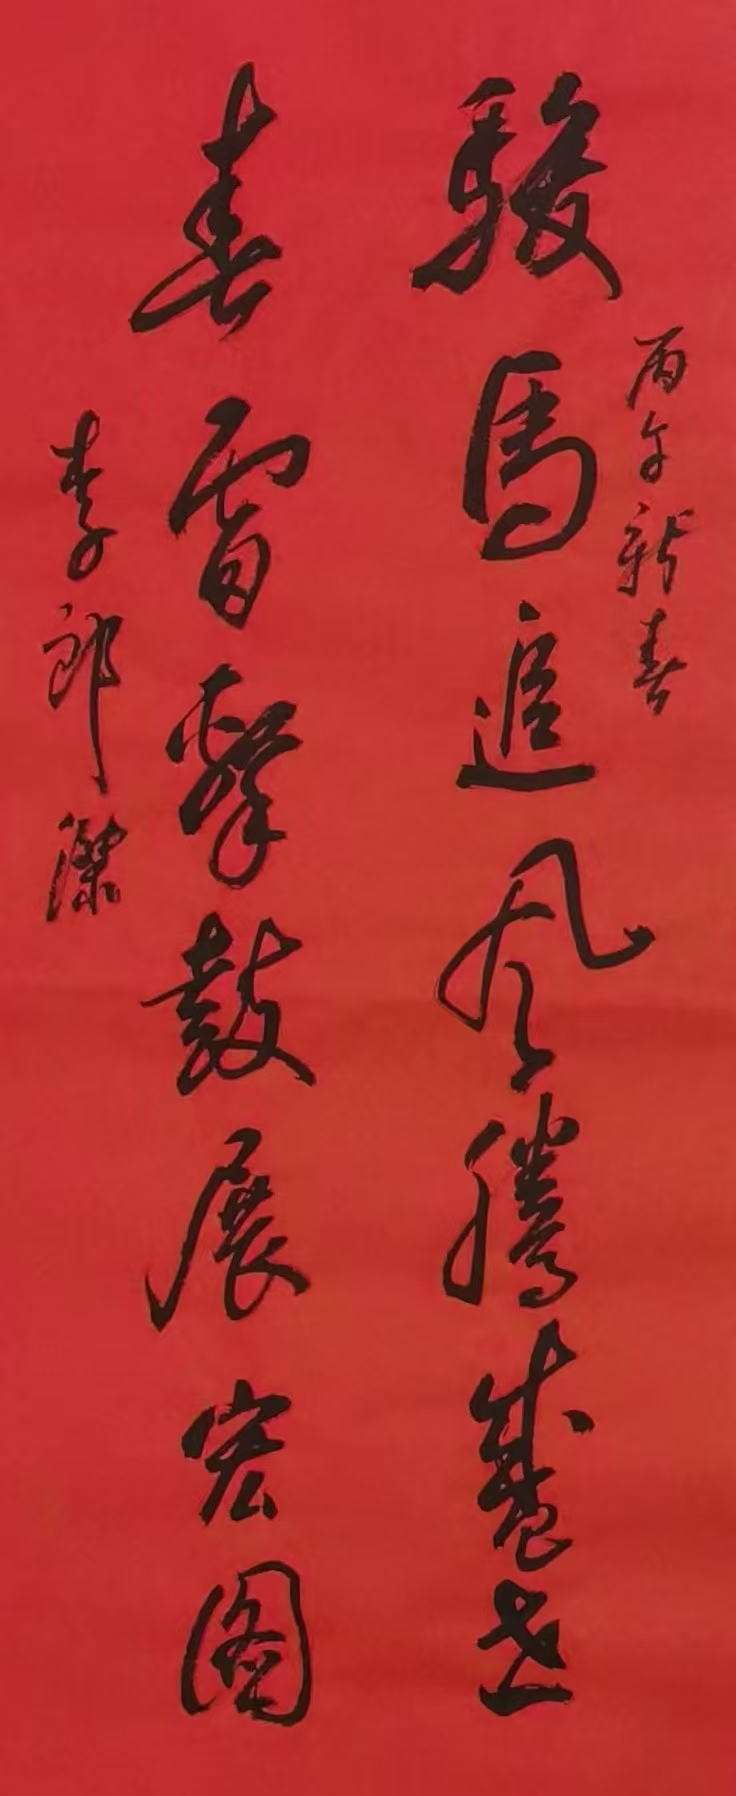 丙午新春
駿馬追風騰盛世
春雷擊鼓展宏图
李郎傑